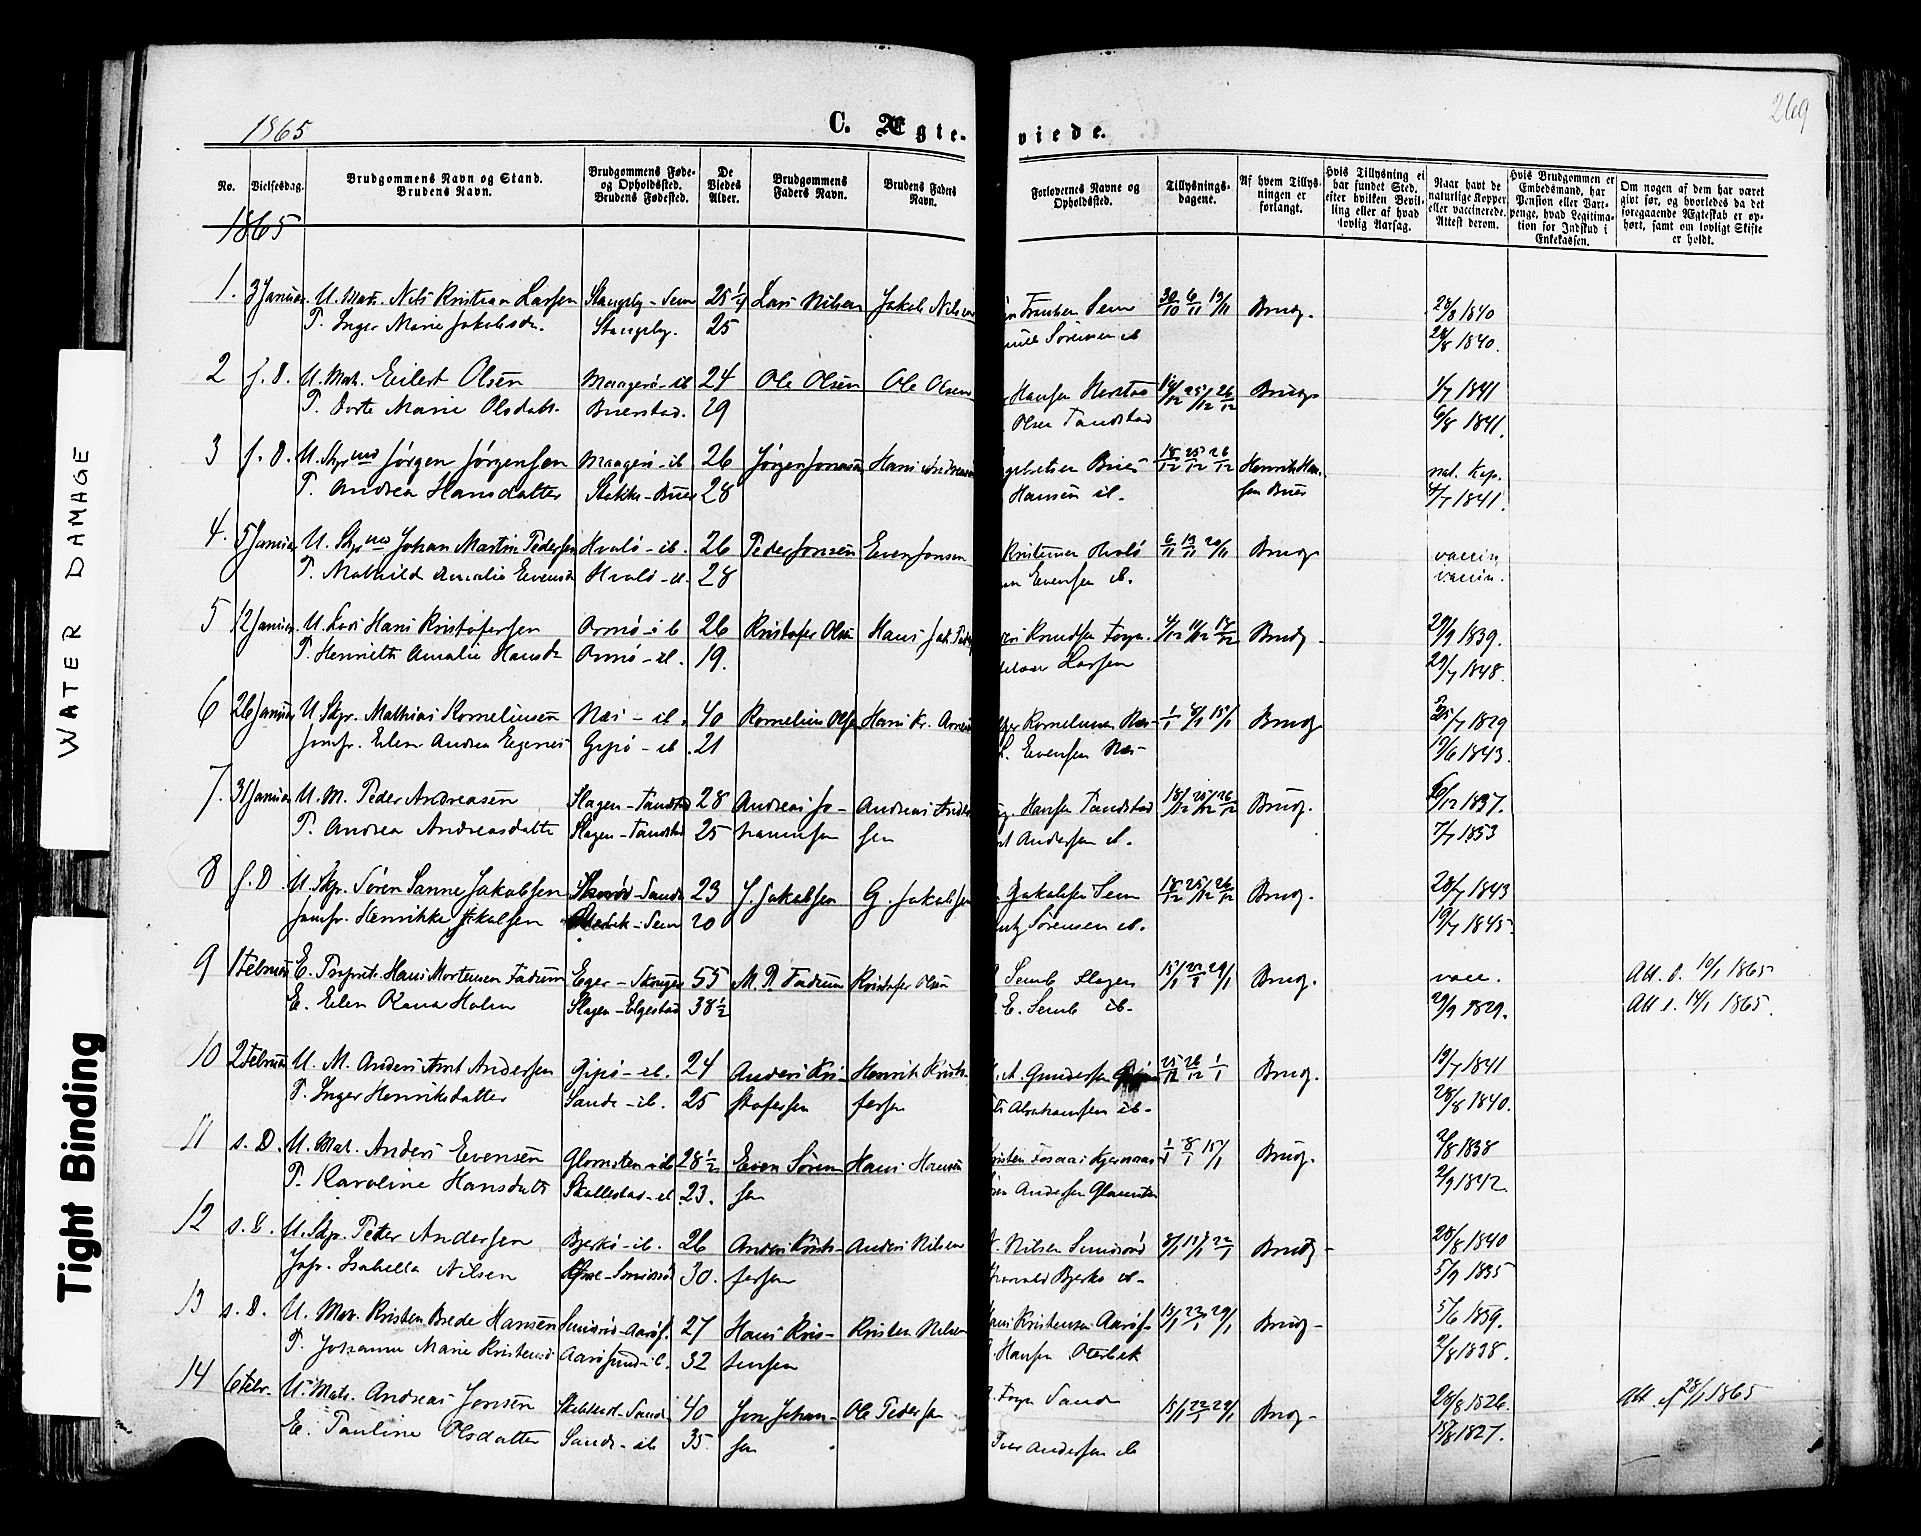 269
1865
C. Ægteviede.
No.
Vielsesdag.
Brudgommens Navn og Stand.
Brudens Navn.
Brudgommens Føde-
og Opholdssted.
Brudens Fødested.
De
Viedes
Alder.
Brudgommens
Faders Navn.
Brudens Faders
Navn.
Forlovernes Navne og
Opholdssted.
Tillysnings-
dagene.
Af hvem Tillys-
ningen er
forlangt.
Hvis Tillysning ei
har fundet Sted,
efter hvilken Bevil-
ling eller af hvad
lovlig Aarsag.
Naar havt de
naturlige Kopper
eller vaccinerede.
Attest derom.
Hvis Brudgommen er
Embedsmand, har
Pension eller Vart-
penge, hvad Legitima-
tion for Indskud i
Enkekassen.
Om nogen af dem har været
givt før, og hvorledes da det
foregaaende Ægteskab er op-
hørt, samt om lovligt Skifte
er holdt.
1865
1. 3 Januar U. Mat. Nils Kristian Larsen Stangeby - Sem 25 1/4 Lars Nilsen Jakob Nilsen Frantsen Sem 30/10 6/11 13/11 Brudg. 28/8 1840
P. Inger Marie Jakobsdr. Stangeby. 25 Sörensen ib 28/8 1840.
2 s. D. U. Mat. Eilert Olsen Maagerö - ib 24 Ole Olsen Ole Olsen Hansen 18/12 25/12 26/12 Brudg. 1/7 1841
P. Dorte Marie Olsdatt. Buerstad. 29 Olsen Tandstad 6/8 1841.
3 s. D. U. Skprmd Jörgen Jörgensen Maagerö - ib 26 Jörgen Jonsen Hans Andreasen Buer 18/12 25/12 26/12 Henrik Han- nat. Kop.
P. Andrea Hansdatter Stokke - Buer 28 Hansen ib. sen Buer 4/7 1841.
4. 5 Januar U. Skprmd Johan Martin Pedersen Hvalö - ib. 26 Peder Jonsen Even Jonsen Kristensen Hvalö 6/11 13/11 20/11 Brudg vaccin.
P. Mathild Amalia Evensd Hvalö - ib. 28 Evensen ib. vaccin.
5 12 Januar U. Lods Hans Kristofersen Ormö - ib 26 Kristofer Olsen Hans Jak. Peders Knudsen 4/12 11/12 Brudg - 29/9 1839.
P. Henriette Amalie Hansdr Ormö - ib. 19. Larsen 29/7 1848.
6 26 Januar U. Skpr. Mathias Korneliusen Næs - ib. 40 Kornelius Olsen Hans Kr. Korneliusen Næs - 1/1 8/1 15/1 Brudg 25/7 1829
Jomfr. Elen Andrea Eegenes Gipö - ib. 21 Evensen Næs - 19/6 1843.
7. 31 Januar U. M. Peder Andreasen Slagen - Tandstad 28 Andreas Jo- Andreas Ander Hansen Tandstad 18/12 25/12 26/12 Brudg. 6/12 1837.
P. Andrea Andreasdatte Slagen - Tandstad 25 hannesen sen Andersen ib. 7/7 1853
8 s. D. U. Skpr. Sören Sanne Jakobsen Sande 23 J. Jakobsen G. Jakobsen Jakobsen Sem 18/12 25/12 26/12 Brudg. 28/7 1843
Jomfr. Henrikke Jakobsen - Sem 20 Sörensen ib. 19/7 1845.
9 1 Februar E. Propriet. Hans Mortensen Fadum Eger - Skouger 55 M. P. Fadum Kristofer Olsen Semb Slagen 15/1 22/1 29/1 Brudg. vacc. Att. d. 10/1 1865
E. Elen Kana Holm Slagen - Elgestad 38 1/2 E. Semb ib. 29/9 1829. Att. d. 14/1 1865.
10 2 Februar U. M. Anders Arnt Andersen Gipö - ib. 24 Anders Kri- Henrik Kristo- A. Gundersen 25/12 26/12 1/1 Brudg. 19/7 1841
P. Inger Henriksdatter Sande - ib. 25 stofersen fersen Abrahamsen ib - 28/8 1840.
11 s. D. U. Mat. Anders Evensen Glomsten - ib 28 1/2 Even Sören Hans Hansen 1/1 8/1 15/1 Brudg. 2/8 1838
P. Karoline Hansdatt Skallestad - ib 23. sen Andersen Glomsten 2/9 1842.
12 s. D. U. Skpr. Peter Andersen Bjerkö - ib. 26 Anders Krist- Anders Nilsen Nilsen Smidsröd 8/1 15/1 22/1 Brudg - 28/8 1840
Jofr. Isabella Nilsen - Smidsröd 30. fersen Bjerkö ib - 5/9 1835
13 s. D. U. Mat. Kristen Brede Hansen Smidsröd - Aarös. 27 Hans Kris- Kristen Nilsen Hans Kristensen Aarös 15/1 22/1 29/1 Brudg - 5/6 1839.
P. Johanne Marie Kristensd Aarösund - ib. 32 tensen Hansen Oterbek 2/8 1838.
14 6 Febr. U. Mat. Andreas Jonsen 40 Jon Johan- Ole Pedersen Foyn Sande 15/1 22/1 29/1 Brudg - 28/8 1826. Att. af 28/1 1865
E. Pauline Olsdatter Sande - ib 35. sen Andersen ib 1827.
WATER DAMAGE
Tight Binding